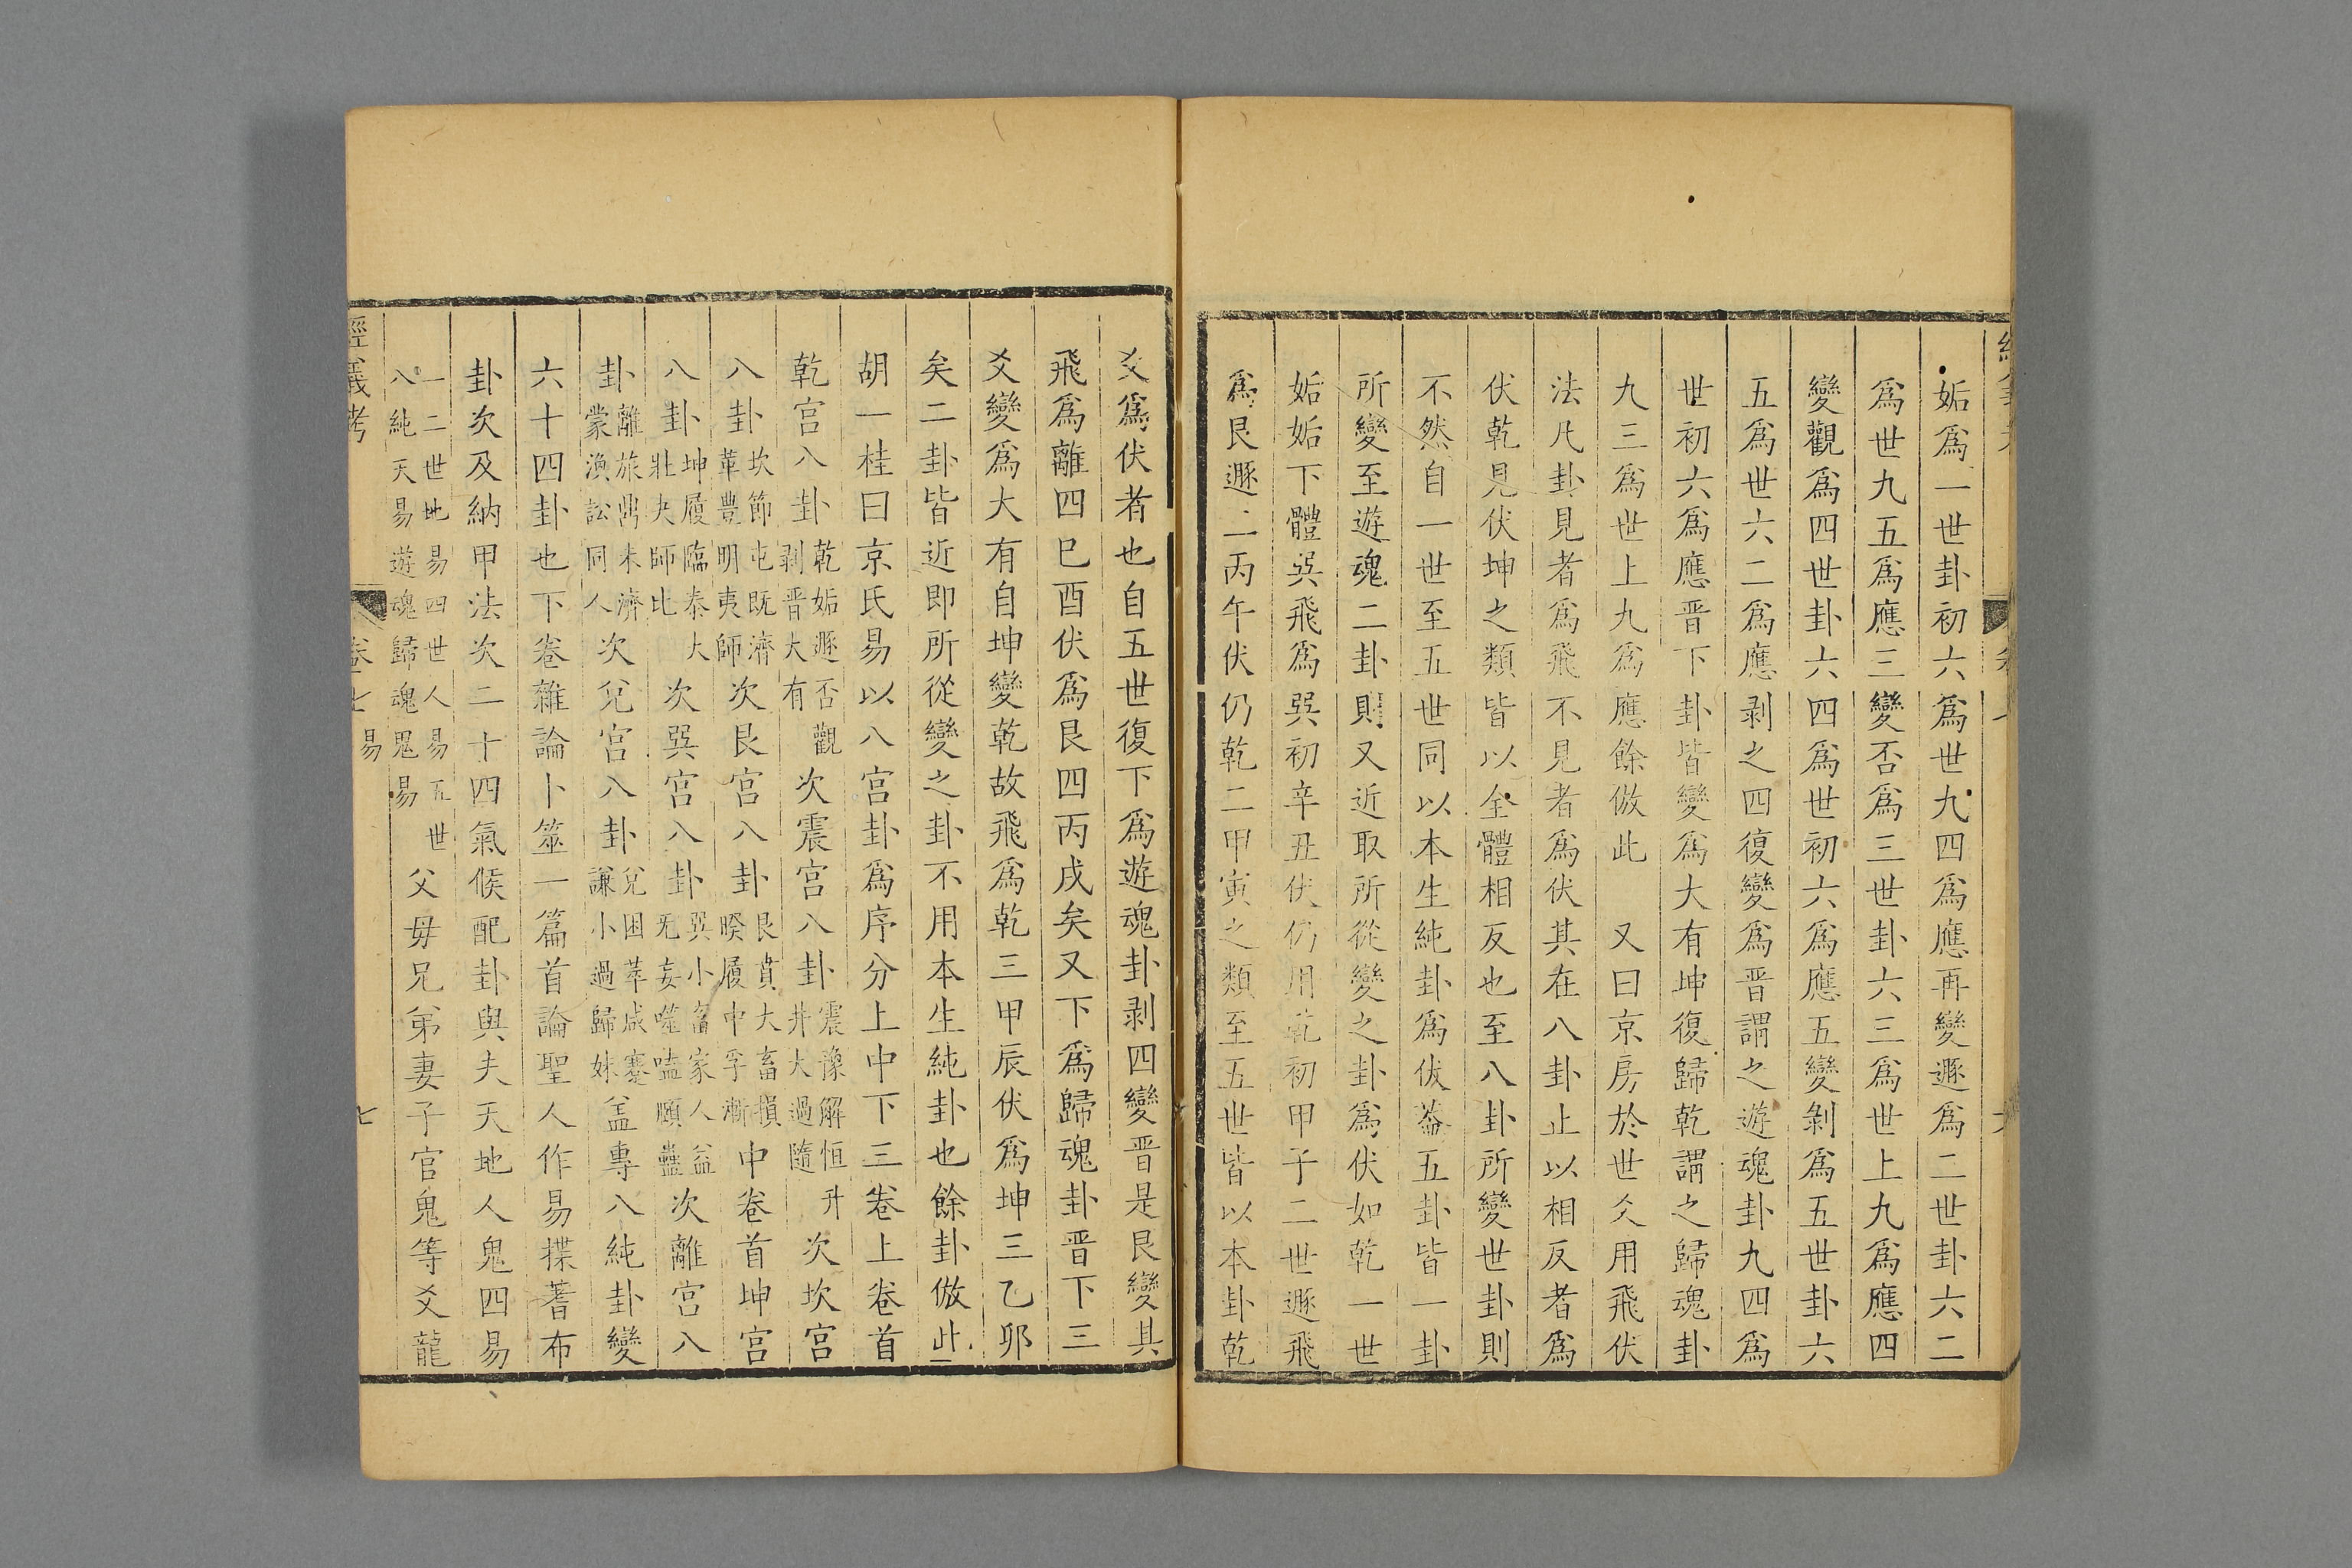 姤爲一世卦初六爲世九四爲應再變遯爲二世卦六二
爲世九五爲應三變否爲三世卦六三爲世上九爲應四
變觀爲四世卦六四爲世初六爲應五變剝爲五世卦六
五爲世六二爲應剥之四復變爲晋謂之遊魂卦九四爲
世初六爲應晋下卦皆變爲大有坤復歸乾謂之歸魂卦
九三爲世上九爲應餘倣此　又曰京房於世爻用飛伏
法凡卦見者爲飛不見者爲伏其在八卦止以相反者爲
伏乾見伏坤之類皆以全體相反也至八卦所變世卦則
不然自一世至五世同以本生純卦爲伏葢五卦皆一卦
所變至遊魂二卦則又近取所從變之卦爲伏如乾一世
姤姤下體巽飛爲巽初辛丑伏仍用乾初甲子二世遯飛
爲艮遯二丙午伏仍乾二甲寅之類至五世皆以本卦乾
爻爲伏者也自五世復下爲遊魂卦剥四變晋是艮變其
飛爲離四巳酉伏爲艮四丙戌矣又下爲歸魂卦晋下三
爻變爲大有自坤變乾故飛爲乾三甲辰伏爲坤三乙卯
矣二卦皆近即所從變之卦不用本生純卦也餘卦倣此
胡一桂曰京氏易以八宫卦爲序分上中下三卷上卷首
乾宫八卦
乾姤遯否觀
剥晋大有
次震宫八卦
震豫解恒升
井大過隨
次坎宫
八卦
坎節屯既濟
革豐明夷師
次艮宫八卦
艮賁大畜損
睽履中孚漸
中卷首坤宫
八卦
坤復臨泰大
壯夬師比
次巽宫八卦
巽小畜家人益
无妄噬嗑頤蠱
次離宫八
卦
離旅鼎未濟
蒙渙訟同人
次兌宫八卦
兌困萃咸蹇
謙小過歸妹
葢專八純卦變
六十四卦也下卷雜論卜筮一篇首論聖人作易揲蓍布
卦次及納甲法次二十四氣候配卦與夫天地人鬼四易
一二世地易四世人易五世
八純天易遊魂歸魂鬼易
父母兄弟妻子官鬼等爻龍
經義考
七
易
七